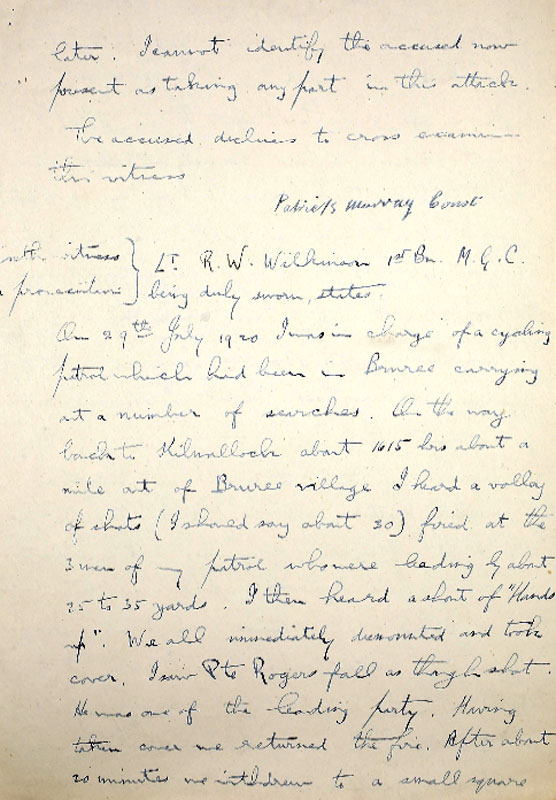 later. I cannot identify the accused now
present as taking any part in this attack.
The accused declines to cross examine
this witness
Patrick Murray Const
witness
prosecution
Lt R. W. Wilkinson 1st Bn. M. G. C.
being duly sworn, states.
On 29th July 1920 I was in charge of a cycling
patrol which had been in Bruree carrying
out a number of searches. On the way
back to Kilmallock about 1615 hrs about a
mile out of Bruree village I heard a volley
of shots (I should say about 30) fired at the
3 men of my patrol who were leading by about
25 to 35 yards. I then heard a shout of "Hands
up". We all immediately dismounted and took
cover. I saw Pte Rogers fall as though shot.
He was one of the leading party. Having
taken cover we returned the fire. After about
20 minutes we withdrew to a small square